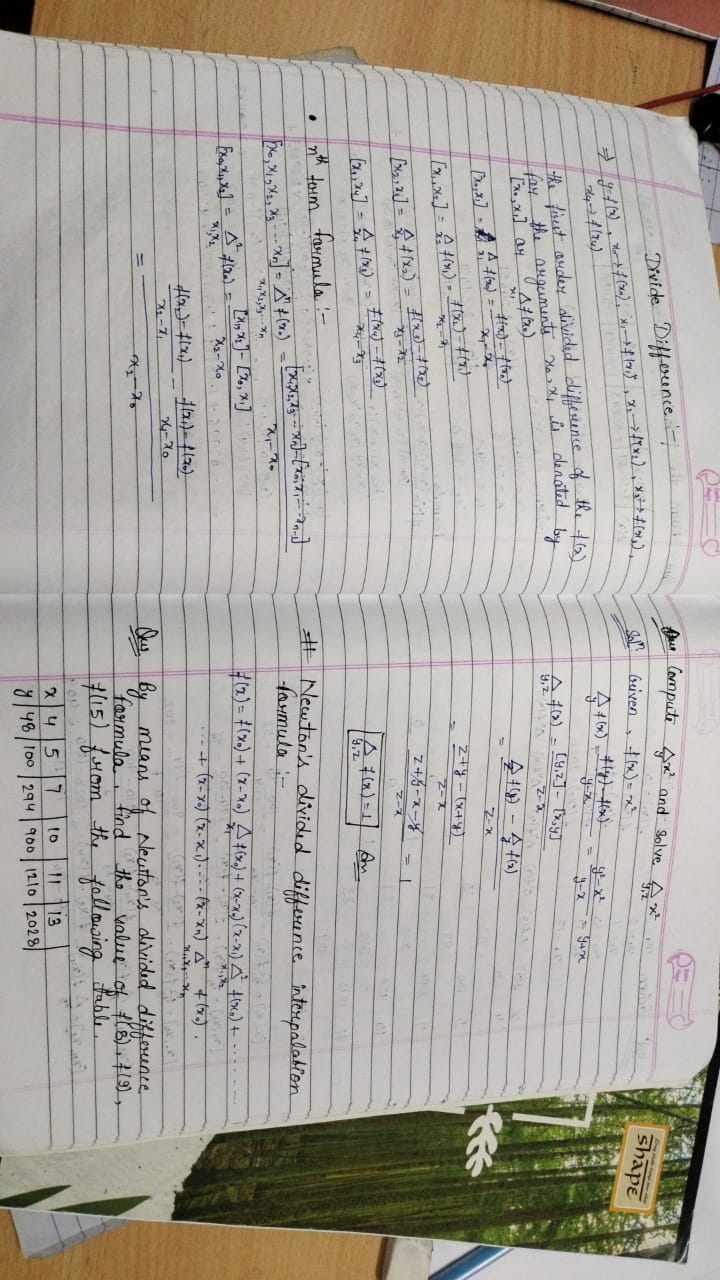 Divide Difference :-
⇒ y=f(x), x₀→f(x₀), x₁→f(x₁), x₂→f(x₂), x₃→f(x₃),
x₄→f(x₄)
the first order divided difference of the f(x)
for the arguments x₀, x₁ is denoted by
[x₀,x₁] or Δ_{x₁} f(x₀)
[x₀,x₁] = Δ_{x₁} f(x₀) = (f(x₁)-f(x₀))/(x₁-x₀)
[x₁,x₂] = Δ_{x₂} f(x₁) = (f(x₂)-f(x₁))/(x₂-x₁)
[x₂,x₃] = Δ_{x₃} f(x₂) = (f(x₃)-f(x₂))/(x₃-x₂)
[x₃,x₄] = Δ_{x₄} f(x₃) = (f(x₄)-f(x₃))/(x₄-x₃)
• nth term formula :-
[x₀,x₁,x₂,x₃...xₙ] = Δⁿ_{x₁,x₂,x₃...xₙ} f(x₀) = ([x₁x₂,x₃...xₙ]-[x₀,x₁...xₙ₋₁])/(x₁-x₀)
[x₀,x₁,x₂] = Δ²_{x₁,x₂} f(x₀) = ([x₁,x₂]-[x₀,x₁])/(x₂-x₀)
= ((f(x₂)-f(x₁))/(x₂-x₁) - (f(x₁)-f(x₀))/(x₁-x₀))/(x₂-x₀)
Que Compute Δ_{y} x² and solve Δ_{y,z} x²
Solⁿ: Given, f(x)=x²
Δ_{y} f(x) = (f(y)-f(x))/(y-x) = (y²-x²)/(y-x) = y+x
Δ_{y,z} f(x) = ([y,z]-[x,y])/(z-x)
= (Δ_{z} f(y) - Δ_{y} f(x))/(z-x)
= (z+y-(x+y))/(z-x)
(z+y-x-y)/(z-x) = 1
Δ_{y,z} f(x)=1 Ans
# Newton's divided difference interpolation
formula :-
f(x)=f(x₀)+(x-x₀) Δ_{x₁} f(x₀)+(x-x₀)(x-x₁) Δ²_{x₁,x₂} f(x₀)+.........
...+(x-x₀)(x-x₁).....(x-xₙ) Δⁿ_{x₁,x₂...xₙ} f(x₀).
Que By means of Newton's divided difference
formula, find the value of f(8), f(9),
f(15) from the following table.
x | 4 | 5 | 7 | 10 | 11 | 13
y | 48 | 100 | 294 | 900 | 1210 | 2028
shape